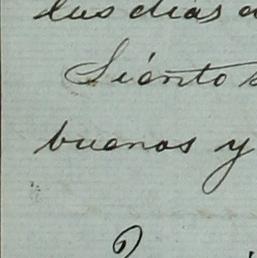 los dias
Siento
buenos y